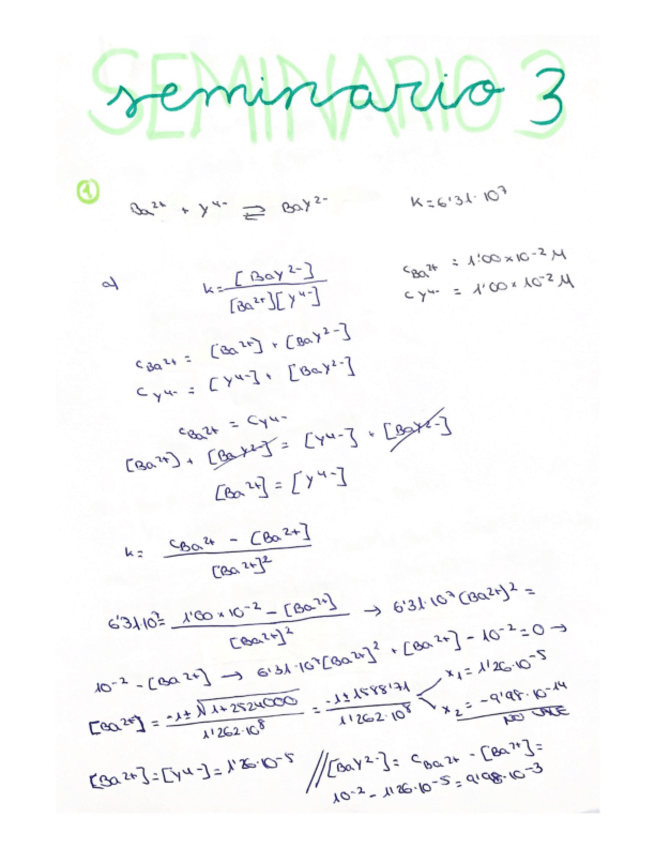 SEMINARIO 3
seminario 3
1
Ba²⁺ + Y⁴⁻ ⇌ BaY²⁻ K = 6'31·10⁷
a) k = [BaY²⁻] / [Ba²⁺][Y⁴⁻] c Ba²⁺ = 1'00×10⁻² M
c Y⁴⁻ = 1'00×10⁻² M
c Ba²⁺ = [Ba²⁺] + [BaY²⁻]
c Y⁴⁻ = [Y⁴⁻] + [BaY²⁻]
c Ba²⁺ = c Y⁴⁻
[Ba²⁺] + [BaY²⁻] = [Y⁴⁻] + [BaY²⁻]
[Ba²⁺] = [Y⁴⁻]
k = c Ba²⁺ - [Ba²⁺] / [Ba²⁺]²
6'31·10⁷ = 1'00×10⁻² - [Ba²⁺] / [Ba²⁺]² → 6'31·10⁷ [Ba²⁺]² =
10⁻² - [Ba²⁺] → 6'31·10⁷ [Ba²⁺]² + [Ba²⁺] - 10⁻² = 0 →
[Ba²⁺] = -1 ± √1+2524000 / 1'262·10⁸ = -1 ± 1588'71 / 1'262·10⁸ x₁ = 1'26·10⁻⁵
x₂ = -9'98·10⁻¹⁴
NO VALE
[Ba²⁺] = [Y⁴⁻] = 1'26·10⁻⁵ // [BaY²⁻] = c Ba²⁺ - [Ba²⁺] =
10⁻² - 1'26·10⁻⁵ = 9'98·10⁻³